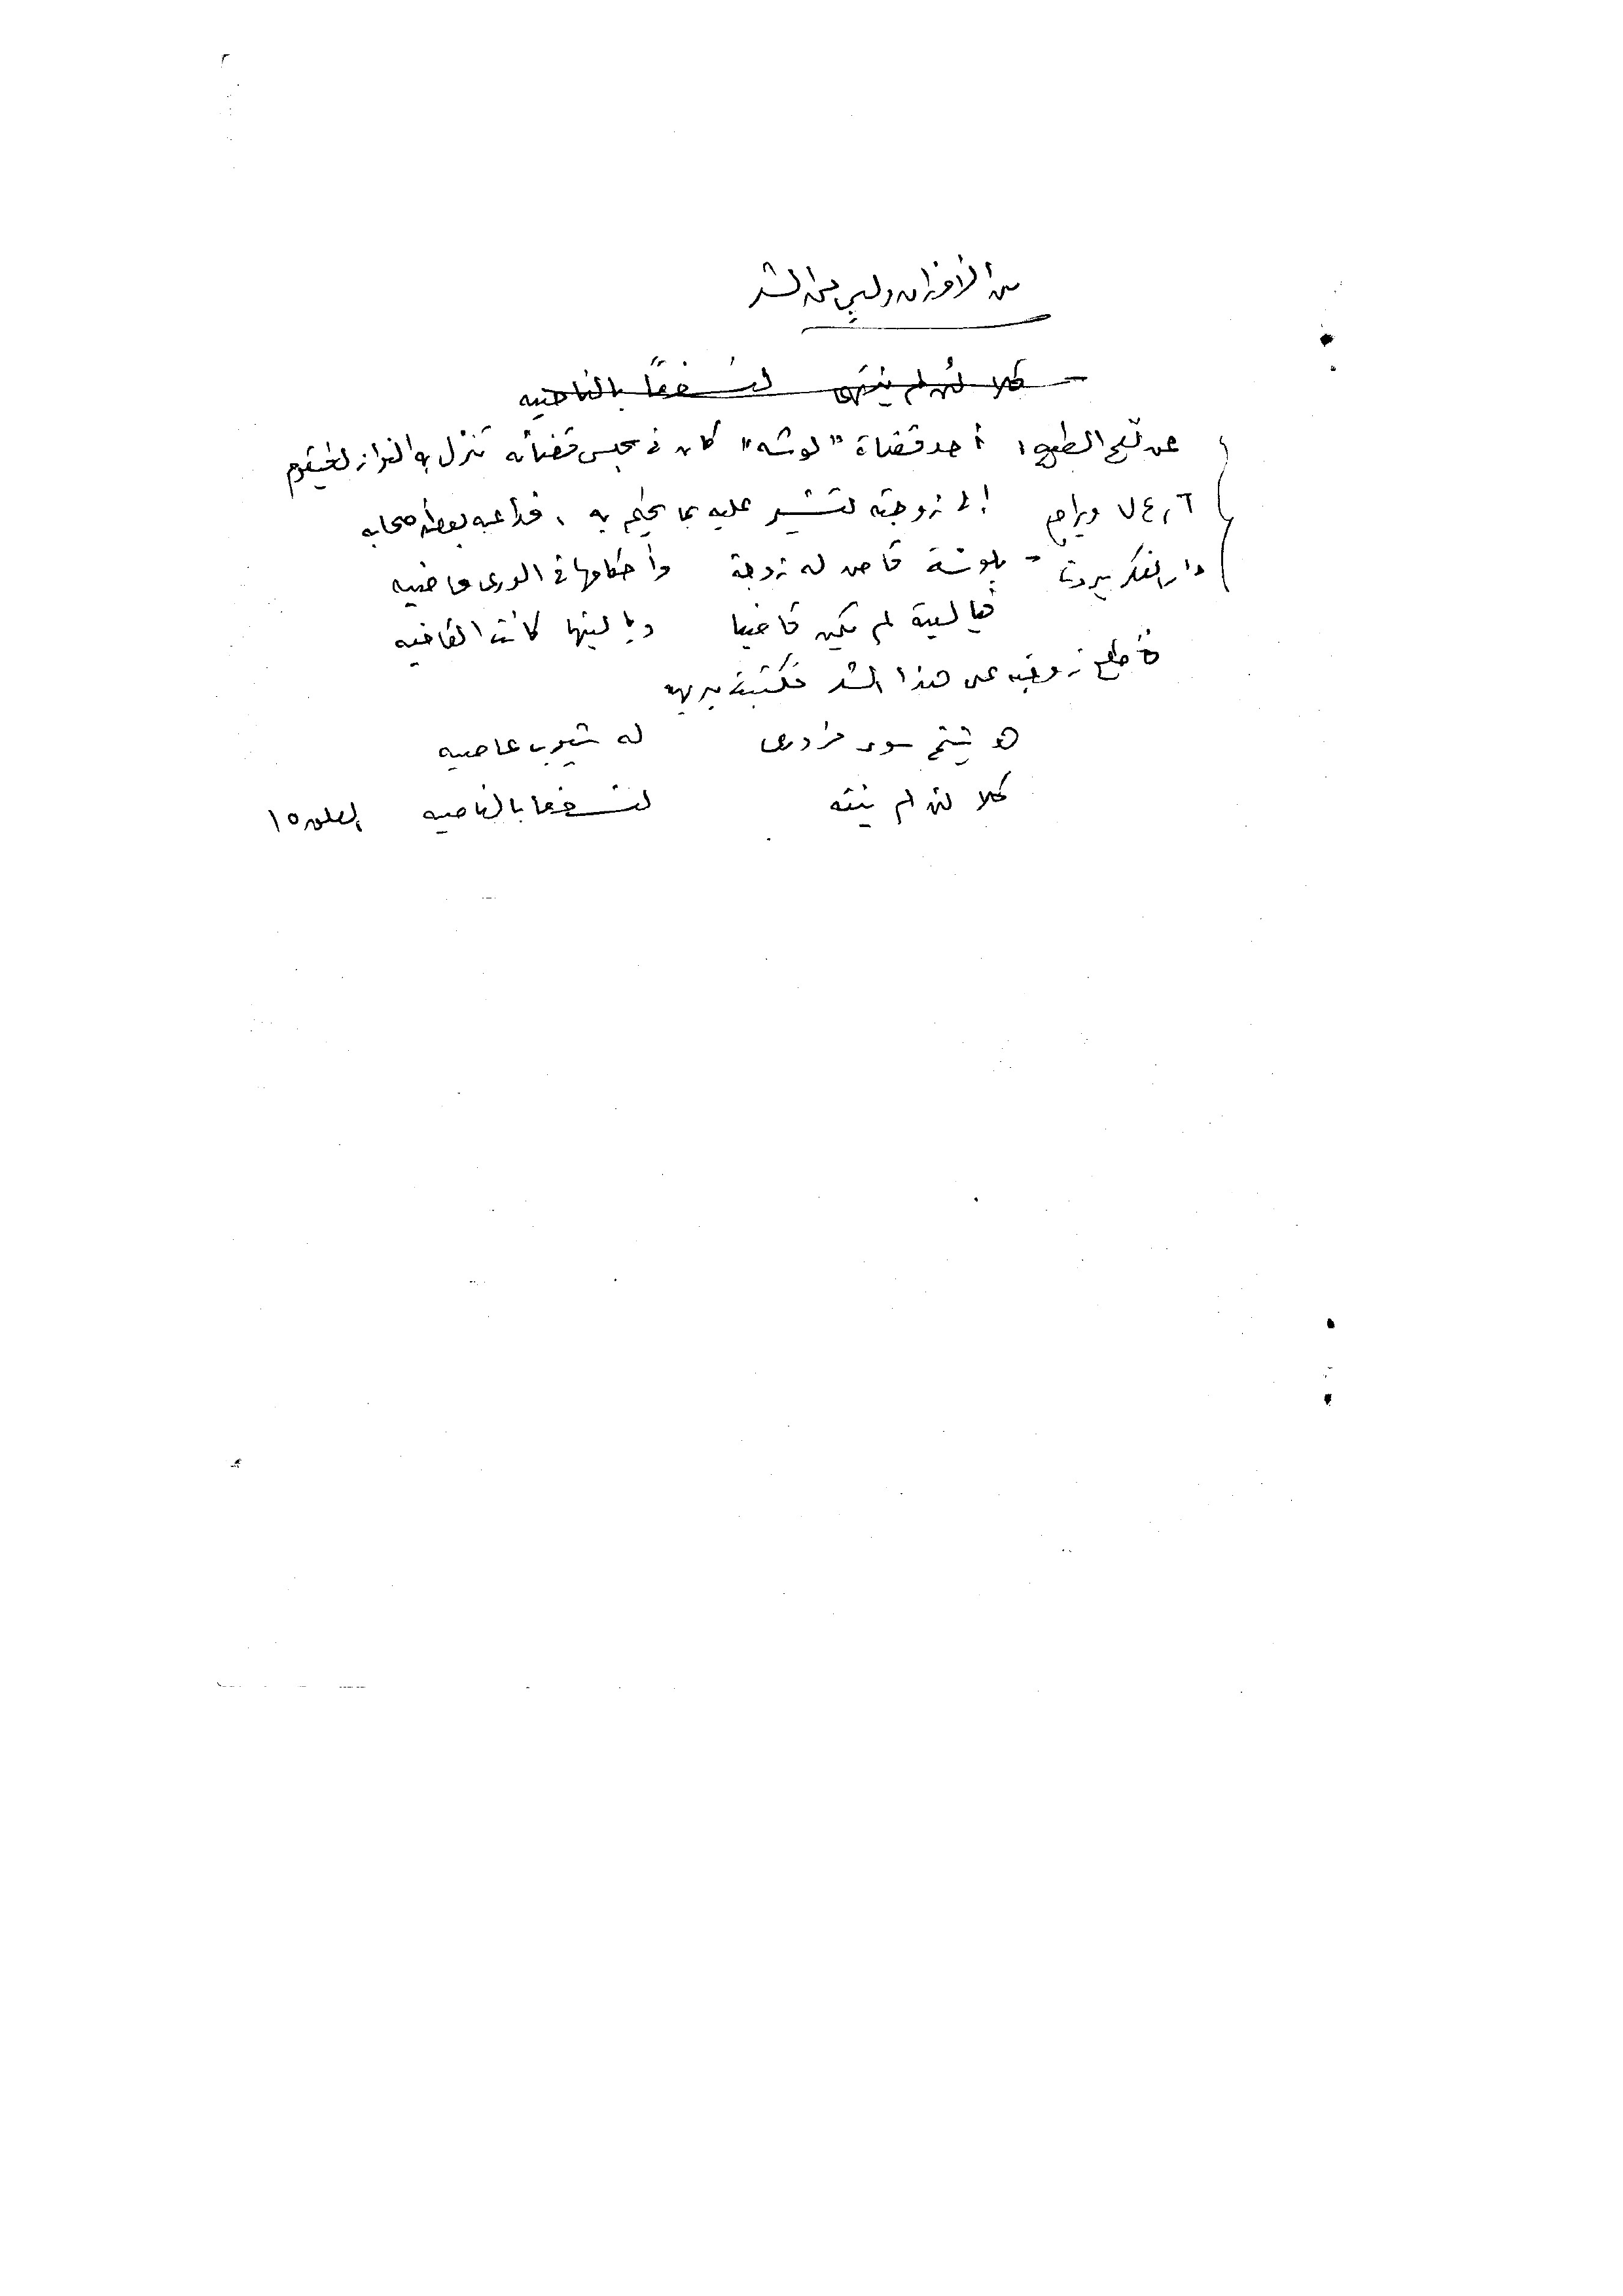 من الأوزان وليس من الشعر
كلا لئن لم ينتهى لنسفعًا بالناصيه
عن نفح الطيب أحد قضاة "لوشه" كان فى مجلس قضائه تنزل به النوازل فيقوم
٦ر٤٧ ويراجع إلى زوجته لتشير عليه بما يحكم به ، فداعبه بعض أصحابه
دار الفكر بيروت - بلوشة قاض له زوجة وأحكامها فى الورى ماضيه
فياليته لم يكن قاضيا وياليتها كانت القاضيه
فأطلع زوجته على هذا الشعر فكتبت بديهه
هو شيخ سوء مزدرى له شيوب عاصيه
كلا لئن لم ينته لنسفعا بالناصيه العلق ١٥